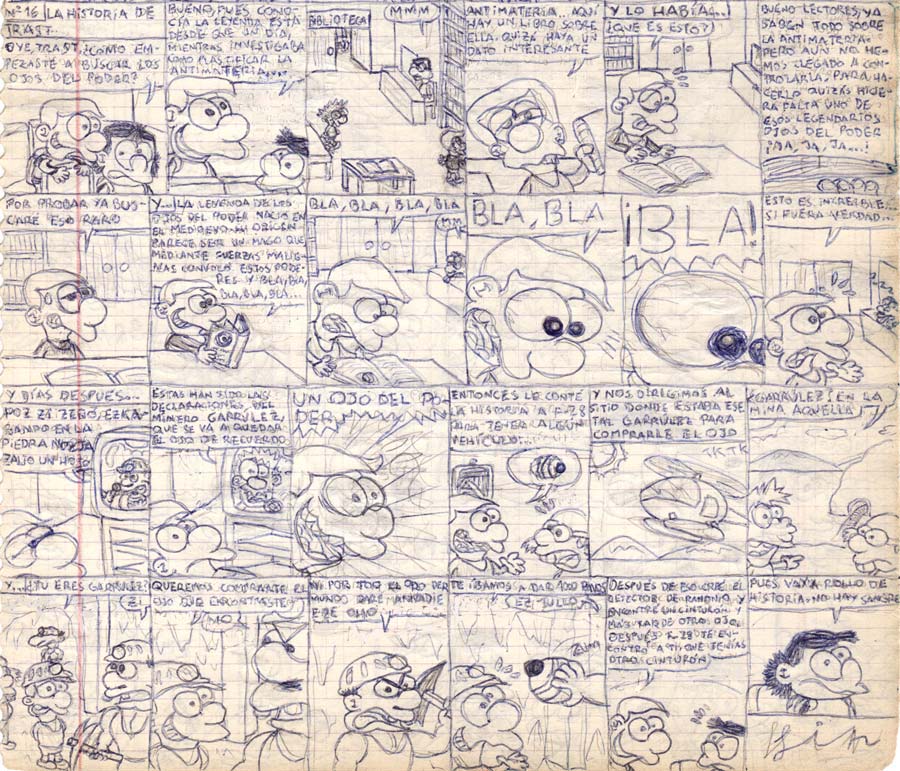 Nº 16
LA HISTORIA DE
TRAST...
OYE, TRAST, ¿CÓMO EM-
PEZASTE A BUSCAR LOS
OJOS DEL PODER?
BUENO, PUES CONO-
CÍA LA LEYENDA ESTA
DESDE QUE UN DÍA,
MIENTRAS INVESTIGABA
COMO PLASTIFICAR LA
ANTIMATERIA...
BIBLIOTECA
MMM
ANTIMATERIA... AQUÍ
HAY UN LIBRO SOBRE
ELLA. QUIZÁ HAYA UN
DATO INTERESANTE
Y LO HABÍA...
¿QUE ES ESTO?
BUENO LECTORES, YA
SABEN TODO SOBRE
LA ANTIMATERIA.
PERO AUN NO HE-
MOS LLEGADO A CON-
TROLARLA; PARA HA-
CERLO QUIZÁS HICIE-
RA FALTA UNO DE
ESOS LEGENDARIOS
OJOS DEL PODER
¡JA, JA, JA...!
POR PROBAR YA BUS-
CARÉ ESO RARO
Y... LA LEYENDA DE LOS
OJOS DEL PODER NACIÓ EN
EL MEDIEVO. SU ORIGEN
PARECE SER UN MAGO QUE
MEDIANTE FUERZAS MALIG-
NAS CONVOCÓ ESTOS PODE-
RES Y BLA, BLA,
BLA, BLA, BLA...
BLA, BLA, BLA, BLA
BLA, BLA
¡BLA!
ESTO ES INCREÍBLE
SI FUERA VERDAD...
Y DÍAS DESPUÉS...
POZ ZI ZEÑO, EZKA-
BANDO EN LA
PIEDRA NOZ JA
ZALIO UN HOJO
ESTAS HAN SIDO LAS
DECLARACIONES DEL
MINERO GARRULEZ,
QUE SE VA A QUEDAR
EL OJO DE RECUERDO
UN OJO DEL PO-
DER
ENTONCES LE CONTÉ
LA HISTORIA A F-28
PARA TENER ALGÚN
VEHÍCULO...
Y NOS DIRIGIMOS AL
SITIO DONDE ESTABA ESE
TAL GARRULEZ PARA
COMPRARLE EL OJO
TKTK
¿GARRÚLEZ? EN LA
MINA AQUELLA
Y... ¿TU ERES GARRULEZ?
ZI
QUEREMOS COMPRARTE EL
OJO QUE ENCONTRASTE
¡NO!
NI POR TOO EL ODO DER
MUNDO DARE A NADIE
EZE OJIO
TE ÍBAMOS A DAR 1000
EZ TUYO
DESPUÉS DE ESO CREÉ EL
DETECTOR DE RANDIUM Y
ENCONTRÉ UN CINTURÓN Y
MAS
DE OTROS OJOS.
DESPUÉS
TE EN-
CONTRO A TI QUE TENÍAS
OTRO CINTURÓN
PUES VAYA ROLLO DE
HISTORIA. NO HAY SANGRE